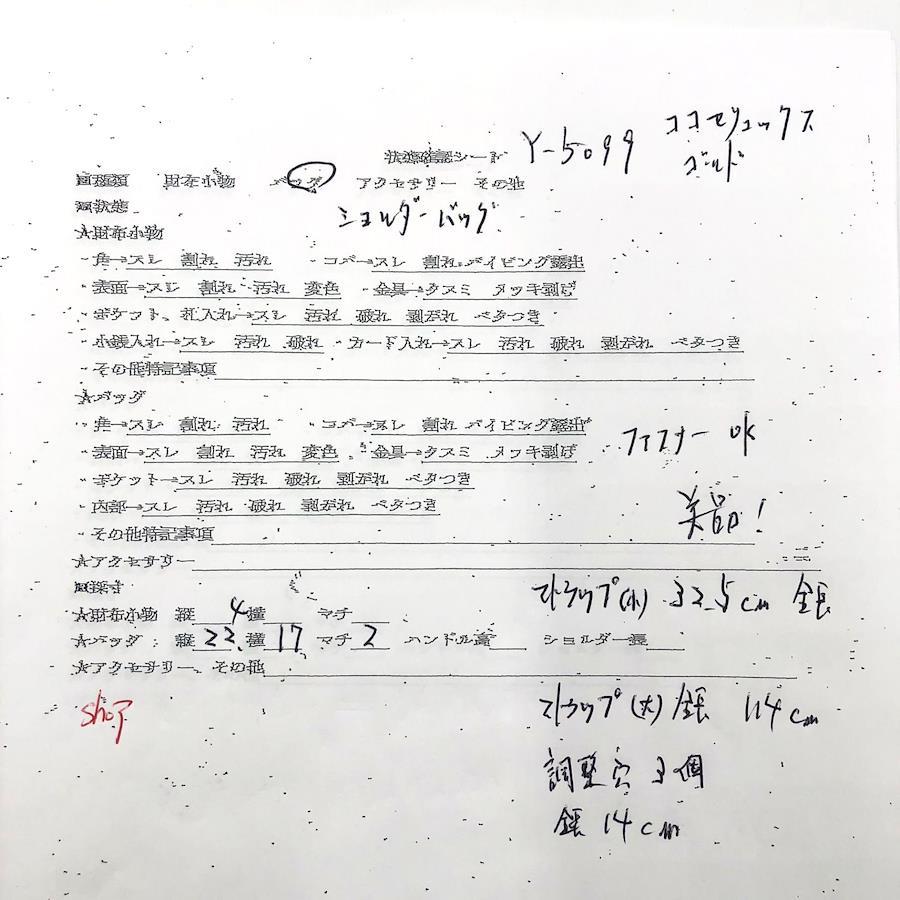 状態確認シート Y-5099 ココセリュックス
ゴールド
■種類 財布小物 バッグ アクセサリー その他
■状態 ショルダーバッグ
★財布小物
・角→スレ 割れ 汚れ ・コバ→スレ 割れ パイピング露出
・表面→スレ 割れ 汚れ 変色 ・金具→クスミ メッキ剥げ
・ポケット、札入れ→スレ 汚れ 破れ 剥がれ ベタつき
・小銭入れ→スレ 汚れ 破れ ・カード入れ→スレ 汚れ 破れ 剥がれ ベタつき
・その他特記事項
★バッグ
・角→スレ 割れ 汚れ ・コバ→スレ 割れ パイピング露出
・表面→スレ 割れ 汚れ 変色 ・金具→クスミ メッキ剥げ
ファスナー OK
・ポケット→スレ 汚れ 破れ 剥がれ ベタつき
・内部→スレ 汚れ 破れ 剥がれ ベタつき
美品!
・その他特記事項
★アクセサリー
■採寸
ストラップ(小) 32.5cm 全長
★財布小物 縦 4 横 マチ
★バッグ: 縦 22 横 17 マチ 2 ハンドル高 ショルダー長
★アクセサリー、その他
shop
ストラップ(大) 全長 114cm
調整穴 3個
全長 14cm